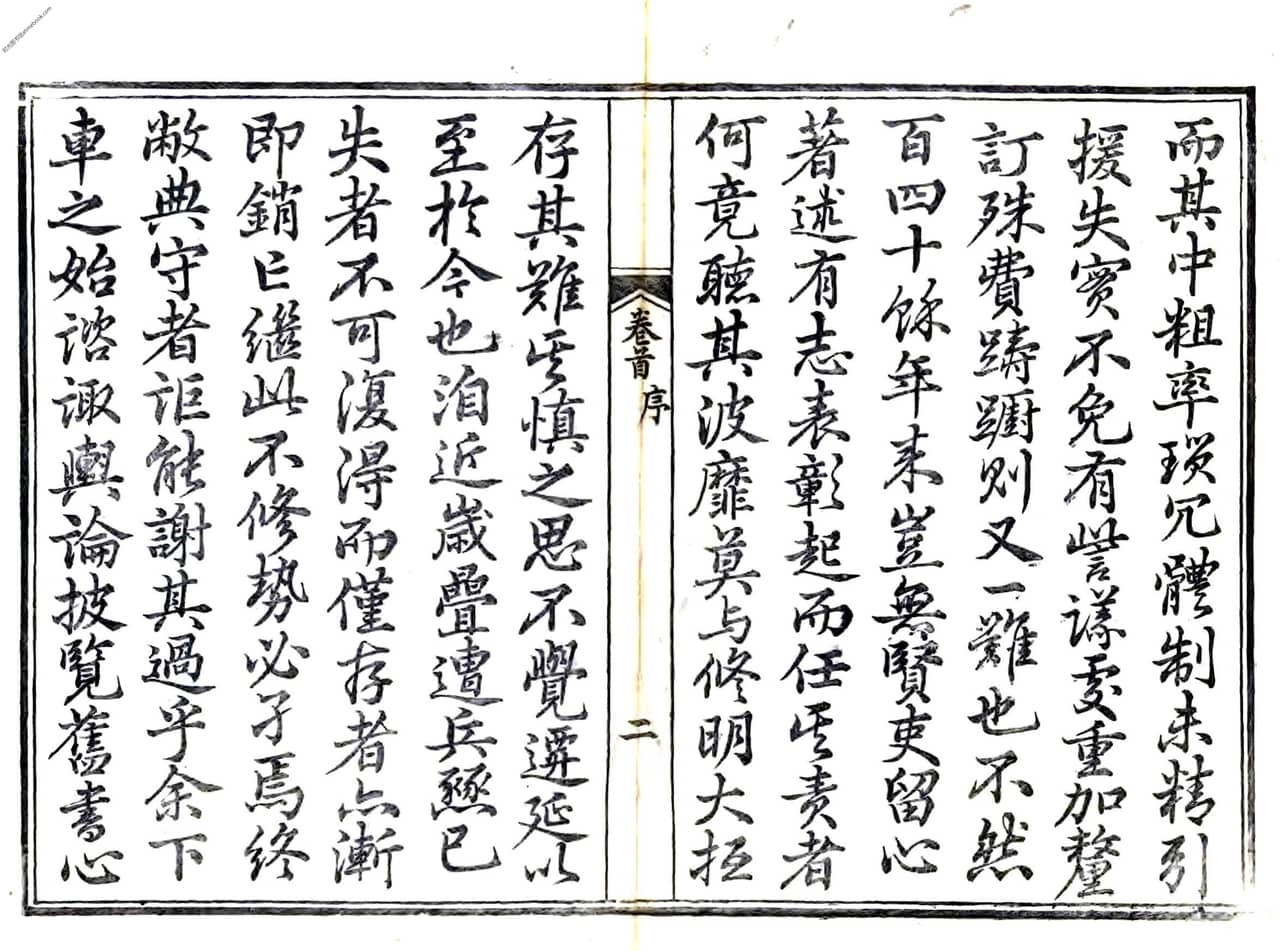 而其中粗率瑣冗體制未精引
援失實不免有訾議處重加釐
訂殊費躊躕則又一難也不然
百四十餘年来豈無賢吏留心
著述有志表彰起而任其責者
何竟聽其波靡莫与修明大抵
卷首 序
二
存其難其慎之思不覺遷延以
至於今也洎近歲疊遭兵燹已
失者不可復得而僅存者亦漸
即銷亡繼此不修勢必孑焉終
敝典守者詎能謝其過乎余下
車之始諮諏輿論披覽舊書心